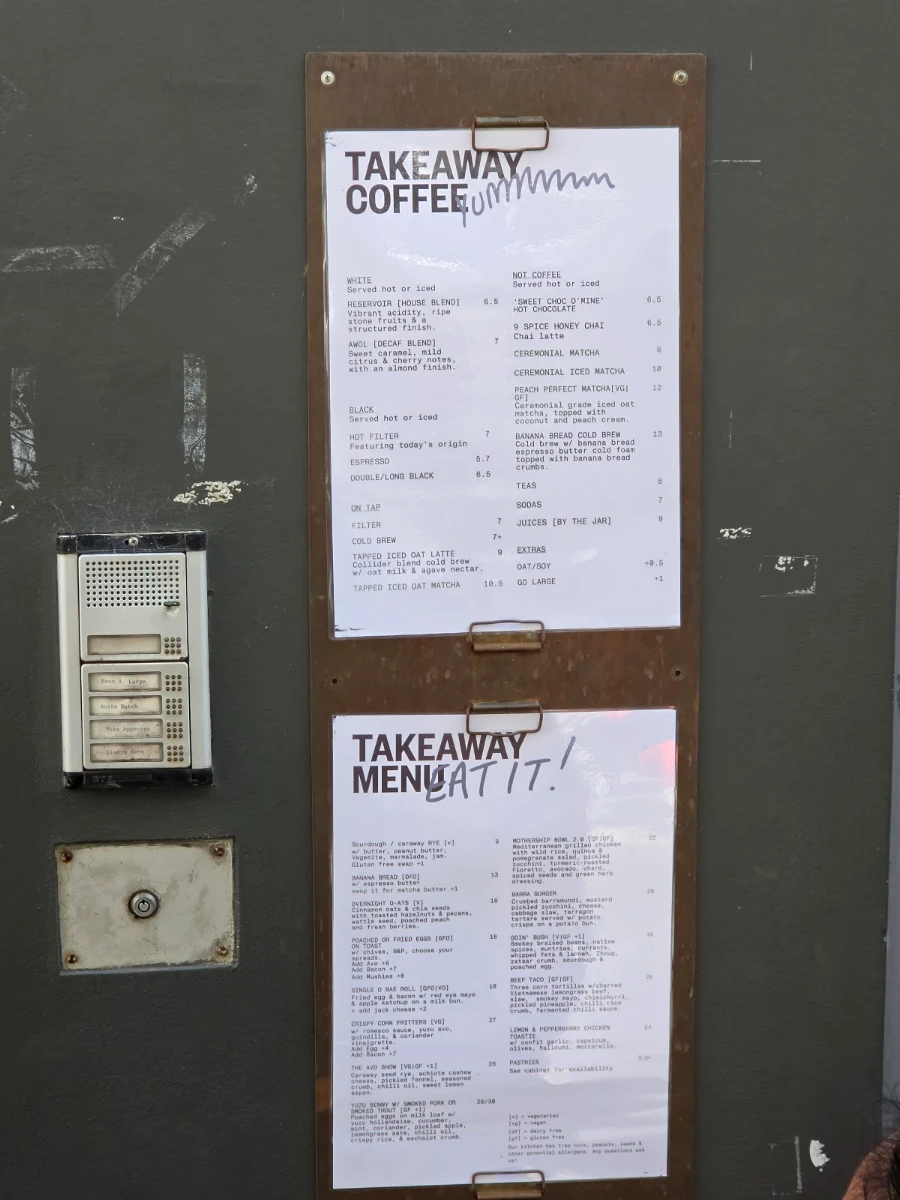 TAKEAWAY
COFFEE
yummmmm
WHITE
Served hot or iced
RESERVOIR [HOUSE BLEND] 6.5
Vibrant acidity, ripe
stone fruits & a
structured finish.
AWOL [DECAF BLEND] 7
Sweet caramel, mild
citrus & cherry notes,
with an almond finish.
BLACK
Served hot or iced
HOT FILTER 7
Featuring today's origin
ESPRESSO 5.7
DOUBLE/LONG BLACK 6.5
ON TAP
FILTER 7
COLD BREW 7+
TAPPED ICED OAT LATTE 9
Collider blend cold brew
w/ oat milk & agave nectar.
TAPPED ICED OAT MATCHA 10.5
NOT COFFEE
Served hot or iced
'SWEET CHOC O'MINE' 6.5
HOT CHOCOLATE
9 SPICE HONEY CHAI 6.5
Chai latte
CEREMONIAL MATCHA 8
CEREMONIAL ICED MATCHA 10
PEACH PERFECT MATCHA[VG| 12
GF]
Ceremonial grade iced oat
matcha, topped with
coconut and peach cream.
BANANA BREAD COLD BREW 13
Cold brew w/ banana bread
espresso butter cold foam
topped with banana bread
crumbs.
TEAS 6
SODAS 7
JUICES [BY THE JAR] 9
EXTRAS
OAT/SOY +0.5
GO LARGE +1
TAKEAWAY
MENU
EAT IT!
Sourdough / caraway RYE [v] 9
w/ butter, peanut butter,
Vegemite, marmalade, jam.
Gluten free swap +1
BANANA BREAD [DFO] 13
w/ espresso butter
swap it for matcha butter +1
OVERNIGHT O-ATS [V] 18
Cinnamon oats & chia seeds
with toasted hazelnuts & pecans,
wattle seed, poached peach
and fresh berries.
POACHED OR FRIED EGGS [GFO] 16
ON TOAST
w/ chives, S&P, choose your
spreads.
Add Avo +6
Add Bacon +7
Add Mushies +6
SINGLE O BAE ROLL [GFO|VO] 18
Fried egg & bacon w/ red eye mayo
& apple ketchup on a milk bun.
+ add jack cheese +2
CRISPY CORN FRITTERS [VG] 27
w/ romesco sauce, yuzu avo,
guindilla, & coriander
vinaigrette.
Add Egg +4
Add Bacon +7
THE AVO SHOW [VG|GF +1] 25
Caraway seed rye, achiote cashew
cheese, pickled fennel, seasoned
crumb, chilli oil, sweet lemon
aspen.
YUZU BENNY W/ SMOKED PORK OR 28/30
SMOKED TROUT [GF +1]
Poached eggs on milk loaf w/
yuzu hollandaise, cucumber,
mint, coriander, pickled apple,
lemongrass sate, chilli oil,
crispy rice, & eschalot crumb.
MOTHERSHIP BOWL 2.0 [DF|GF]
Mediterranean grilled chicken
with wild rice, quinoa &
pomegranate salad, pickled
zucchini, turmeric-roasted
fioretto, avocado, chard,
spiced seeds and green herb
dressing.
BARRA BURGER
Crumbed barramundi, mustard
pickled zucchini, cheese,
cabbage slaw, tarragon
tartare served w/ potato
crisps on a potato bun.
GOIN' BUSH [V|GF +1]
Smokey braised beans, native
spices, muntries, currants,
whipped feta & labneh, Zhoug,
zataar crumb, sourdough &
poached egg.
BEEF TACO [GF|DF]
Three corn tortillas w/charred
Vietnamese lemongrass beef,
slaw, smokey mayo, chimichurri,
pickled pineapple, chilli rice
crumb, fermented chilli sauce.
LEMON & PEPPERBERRY CHICKEN 24
TOASTIE
w/ confit garlic, capsicum,
olives, halloumi, mozzarella.
PASTRIES
See cabinet for availability
[v] = vegetarian
[vg] = vegan
[df] = dairy free
[gf] = gluten free
Our kitchen has tree nuts, peanuts, seeds &
other potential allergens. Any questions ask
us!